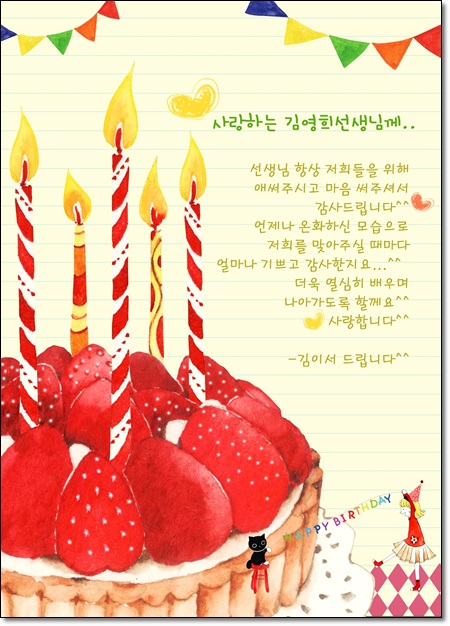 사랑하는 김영희선생님께..
선생님 항상 저희들을 위해
애써주시고 마음 써주셔서
감사드립니다^^
언제나 온화하신 모습으로
저희를 맞아주실 때마다
얼마나 기쁘고 감사한지요...^^
더욱 열심히 배우며
나아가도록 할께요^^
사랑합니다^^
-김이서 드립니다^^
HAPPY BIRTHDAY